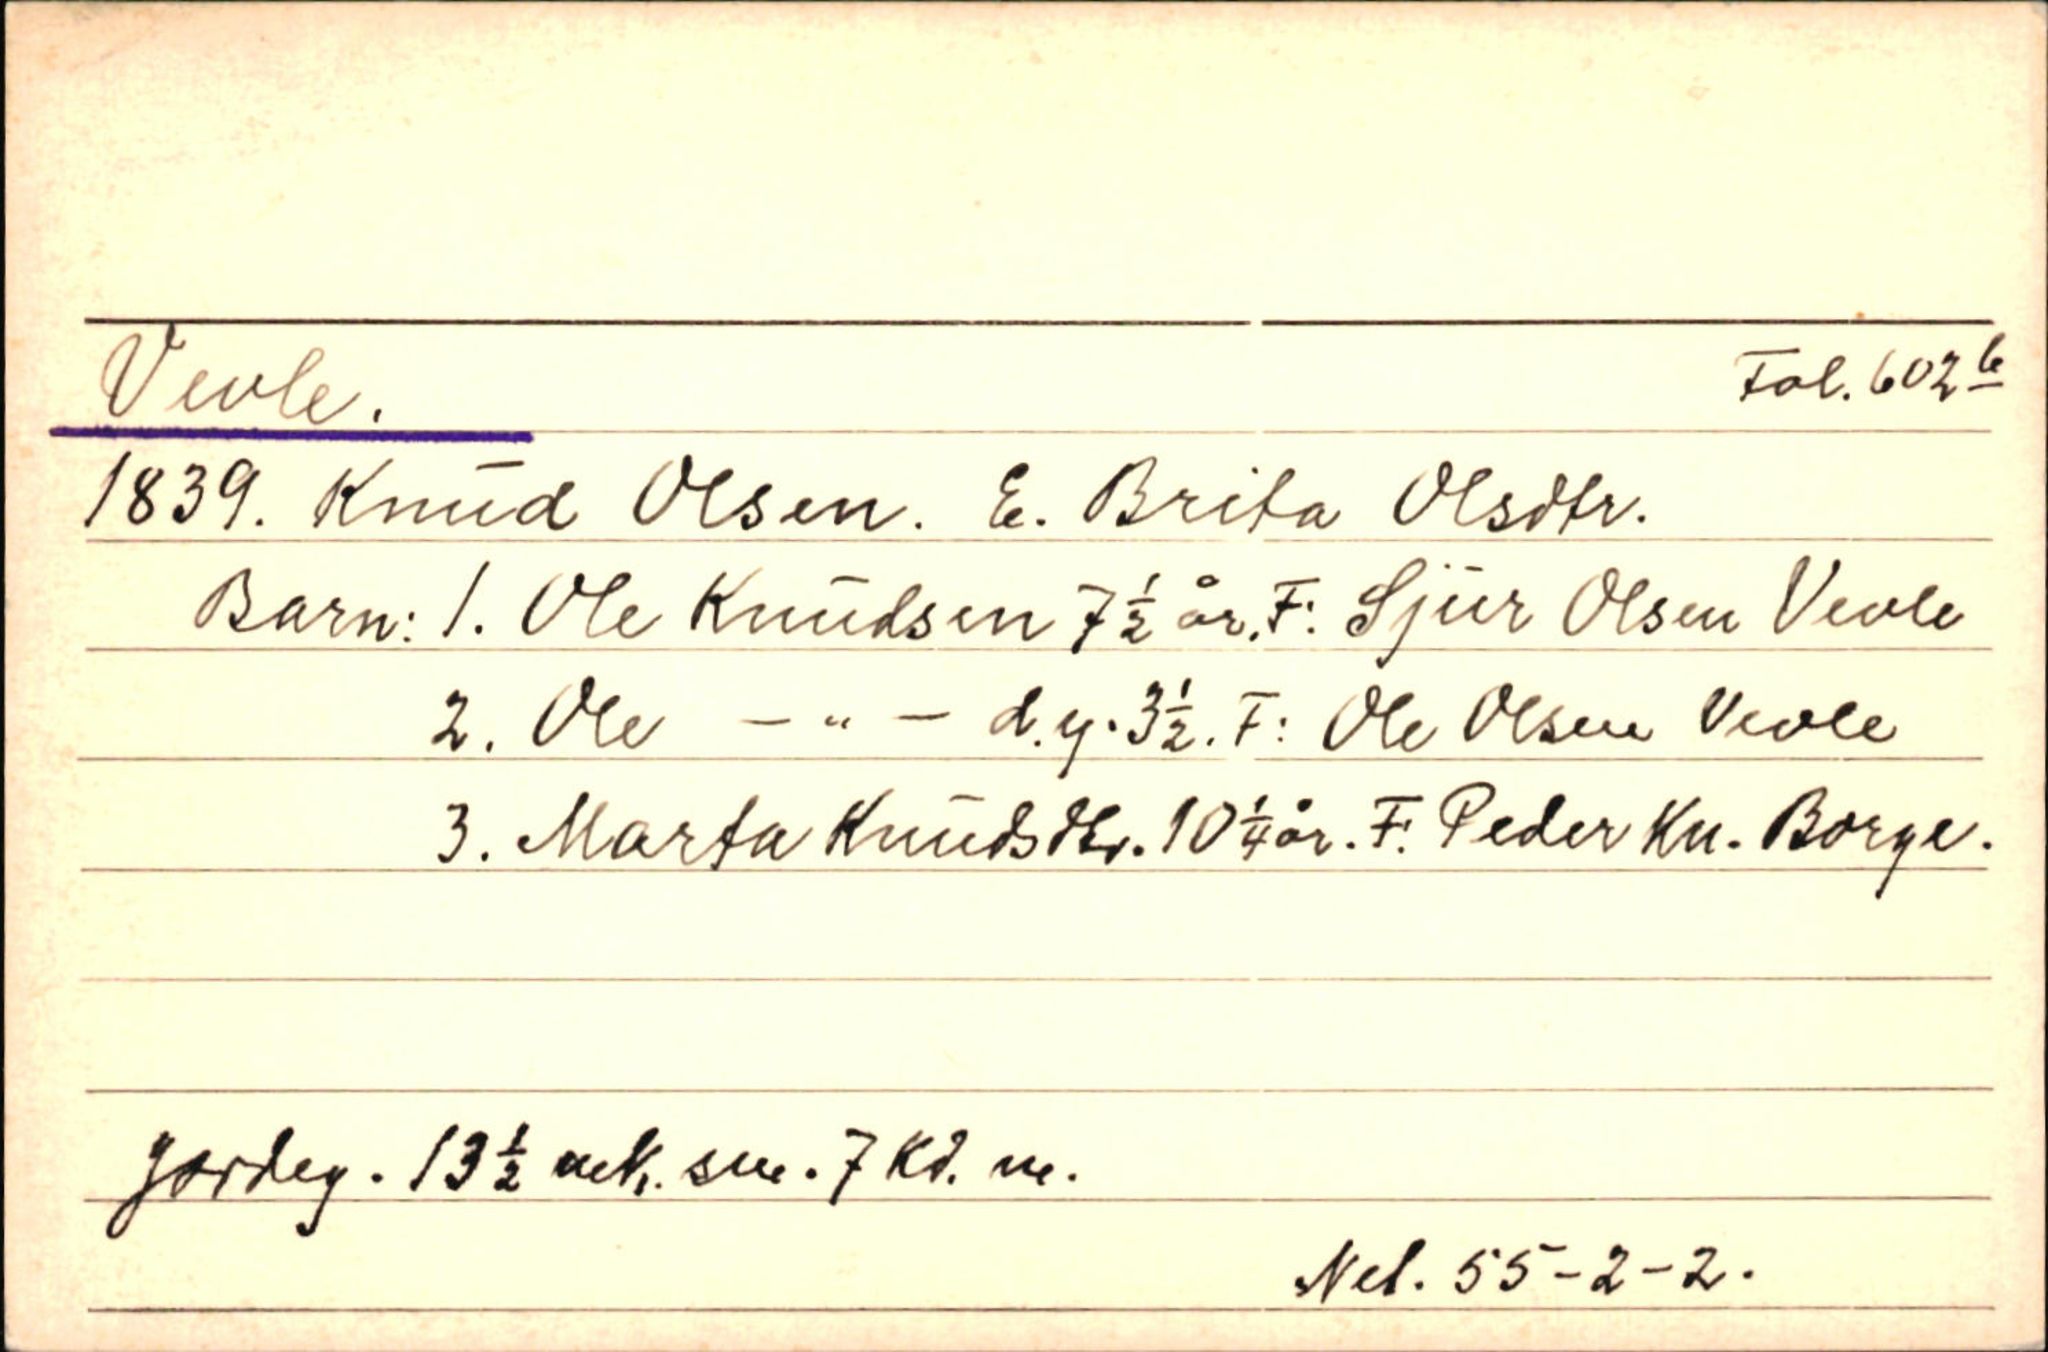 Vevle. Fol. 602 b
1839. Knud Olsen. E. Brita Olsdtr.
Barn: 1. Ole Knudsen 7 1/2 år. F: Sjur Olsen Vevle
2. Ole - " - d.y. 3 1/2. F: Ole Olsen Vevle
3. Marta Knudsdtr. 10 1/4 år. F: Peder Kn. Borge.
Jordeg. 13 1/2 mk. sm. 7 Kd. m.
Net. 55-2-2.